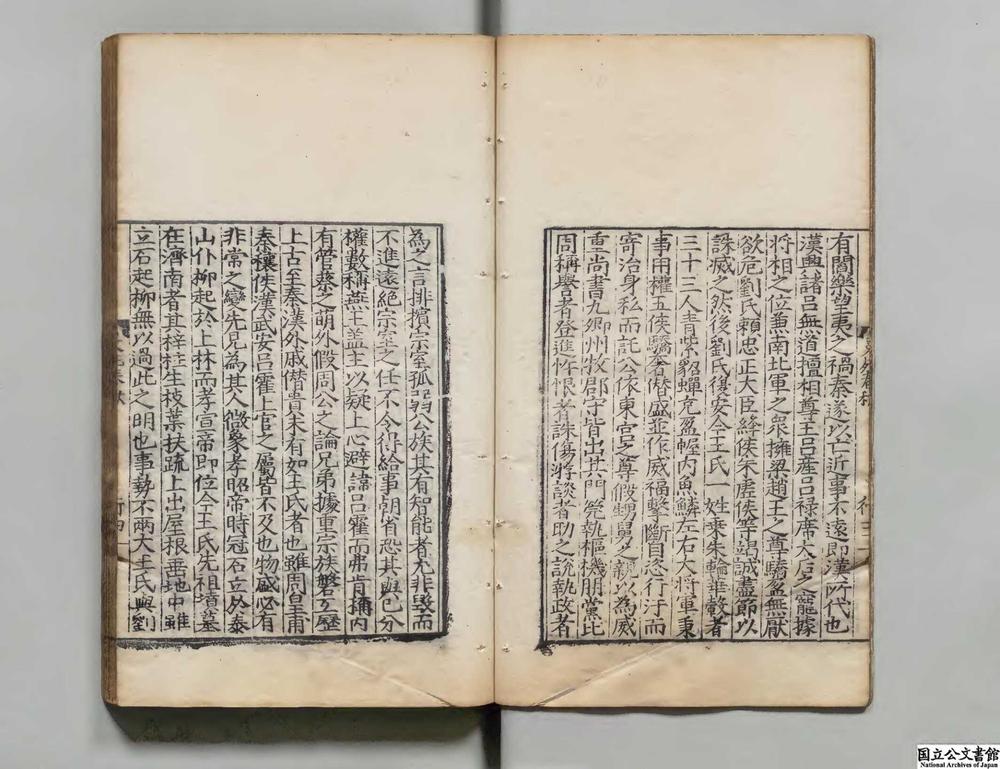 有閻樂望夷之禍秦遂以亡近事不遠即漢所代也
漢興諸呂無道擅相尊王呂產呂祿席大后之寵據
將相之位兼南北軍之衆擁梁趙王之尊驕盈無厭
欲危劉氏賴忠正大臣絳侯朱虛侯等竭誠盡節以
誅滅之然後劉氏復安今王氏一姓乘朱輪華轂者
三十三人青紫貂蟬充盈幄内魚鱗左右大將軍秉
事用權五侯驕奢僭盛並作威福擊斷自恣行汙而
寄治身私而託公依東宮之尊假甥舅之親以為威
重尚書九卿州牧郡守皆出其門筦執樞機朋黨比
周稱譽者登進忤恨者誅傷游談者助之說執政者
為之言排擯宗室孤弱公族其有智能者尤非毀而
不進遠絕宗室之任不令得給事朝省恐其與己分
權數稱燕王蓋主以疑上心避諱呂霍而弗肯稱内
有管蔡之萌外假周公之論兄弟據重宗族磐互歷
上古至秦漢外戚僭貴未有如王氏者也雖周皇甫
秦穰侯漢武安呂霍上官之屬皆不及也物盛必有
非常之變先見為其人微象孝昭帝時冠石立於泰
山仆柳起於上林而孝宣帝即位今王氏先祖墳墓
在濟南者其梓柱生枝葉扶疏上出屋根垂地中雖
立石起柳無以過此之明也事勢不兩大王氏與劉
国立公文書館
National Archives of Japan